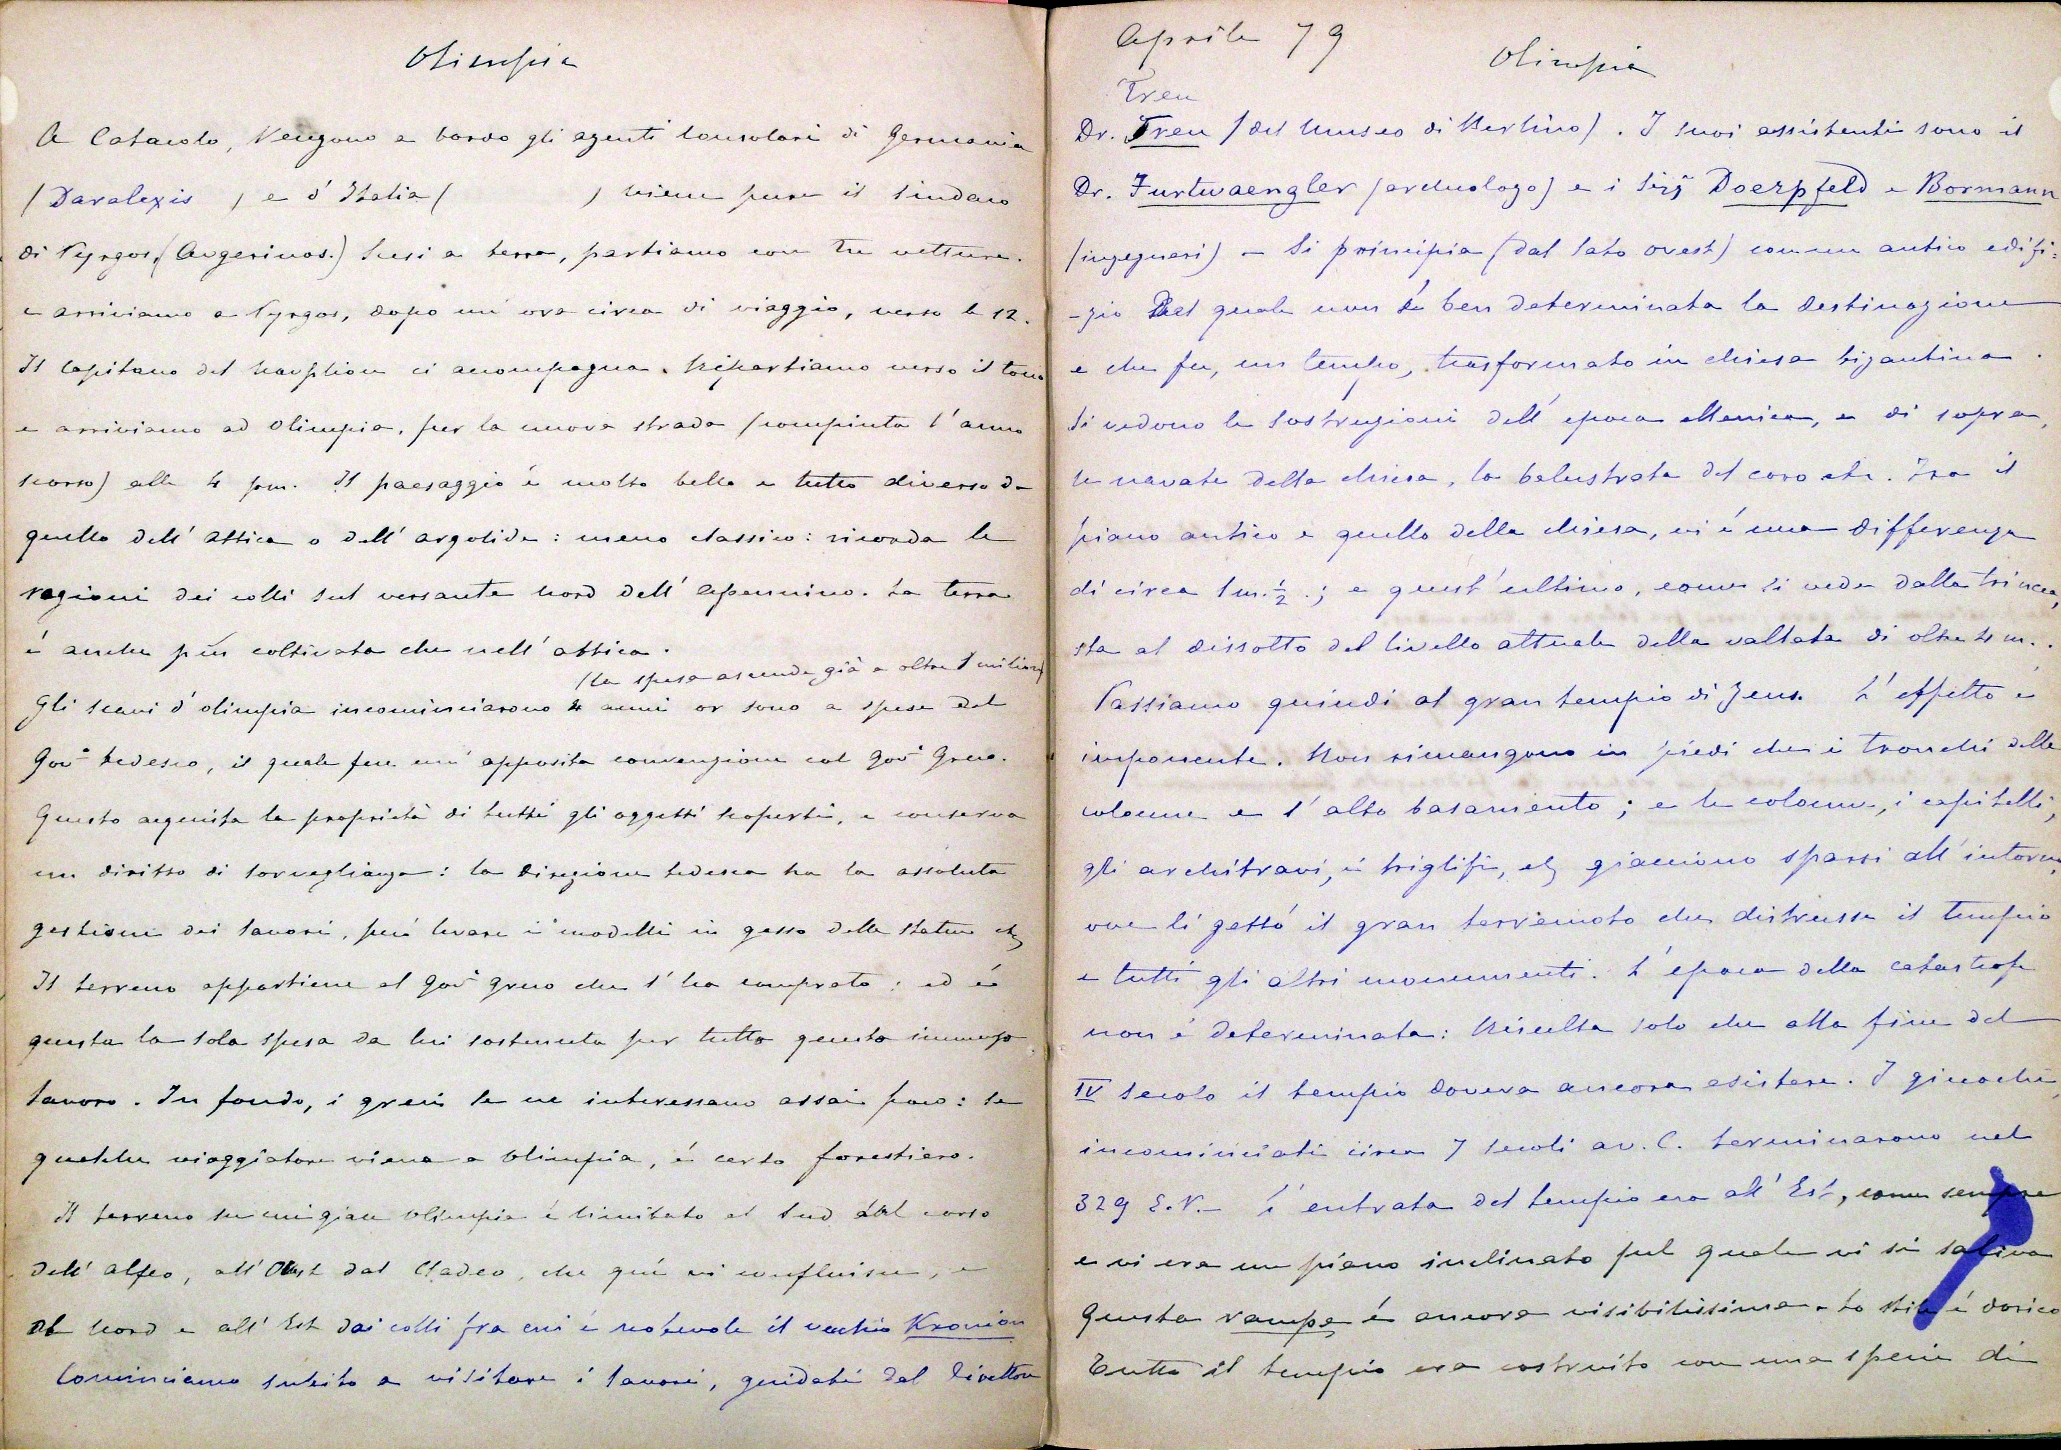 Olimpia
A Catacolo, Vengono a bordo gli agenti consolari di Germania
(Daralexis ) e d'Italia ( ) viene pure il Sindaco
di Pyrgos, (Avgerinos.) Scesi a terra, partiamo con tre vetture.
e arriviamo a Pyrgos, dopo un'ora circa di viaggio, verso le 12.
Il Capitano del Nauplion ci accompagna. Ripartiamo verso il tocco
e arriviamo ad Olimpia, per la nuova strada (compiuta l'anno
scorso) alle 4 pm. Il paesaggio é molto bello e tutto diverso da
quello dell'Attica o dell'Argolide: meno classico: ricorda le
regioni dei colli sul versante nord dell'Apennino. La terra
é anche più coltivata che nell'Attica.
(la spesa ascende già a oltre 1 milione)
Gli scavi d'Olimpia incominciarono 4 anni or sono a spese del
Govo tedesco, il quale fece un'apposita convenzione col Govo Greco.
Questo acquista la proprietà di tutti gli oggetti scoperti, e conserva
un diritto di sorveglianza: la direzione tedesca ha la assoluta
gestione dei lavori, può levare i modelli in gesso delle statue etc
Il terreno appartiene al Govo greco che l'ha comprato: ed é
questa la sola spesa da lui sostenuta per tutto questo immenso
lavoro. In fondo, i greci se ne interessano assai poco: se
qualche viaggiatore viene a Olimpia, é certo forestiero.
Il terreno su cui giace Olimpia é limitato al Sud dal corso
dell'Alfeo, all'Ovest dal Cladeo, che qui vi confluisce, e
al Nord e all'Est dai colli fra cui é notevole il vecchio Kronion
Cominciamo subito a visitare i lavori, guidati dal Direttore
Aprile 79
Olimpia
Treu
Dr. Treu (del Museo di Berlino). I suoi assistenti sono il
Dr. Furtwaengler (archeologo) e i Sigi Doerpfeld e Bormann
(ingegneri) - Si principia (dal lato ovest) con un antico edifi=
-zio del quale non é ben determinata la destinazione
e che fu, un tempo, trasformato in chiesa bizantina.
Si vedono le sostruzioni dell'epoca ellenica, e di sopra,
le navate della chiesa, la balustrata del coro etc. Fra il
piano antico e quello della chiesa, vi é una differenza
di circa 1 m. ½.; e quest'ultimo, come si vede dalla trincea,
sta al dissotto del livello attuale della vallata di oltre 4 m..
Passiamo quindi al gran tempio di Zeus. L'effetto é
imponente. Non rimangono in piedi che i tronchi delle
colonne e l'alto basamento; e le colonne, i capitelli,
gli architravi, i triglifi, etc giacciono sparsi all'intorno,
ove li gettó il gran terremoto che distrusse il tempio
e tutti gli altri monumenti. L'epoca della catastrofe
non é determinata: Risulta solo che alla fine del
IV secolo il tempio doveva ancora esistere. I giuochi,
incominciati circa 7 secoli av. C. terminarono nel
329 E.V. - L'entrata del tempio era all'Est, come sempre
e vi era un piano inclinato pel quale vi si saliva
Questa rampe é ancora visibilissima. Lo stile é dorico
Tutto il tempio era costruito con una specie di